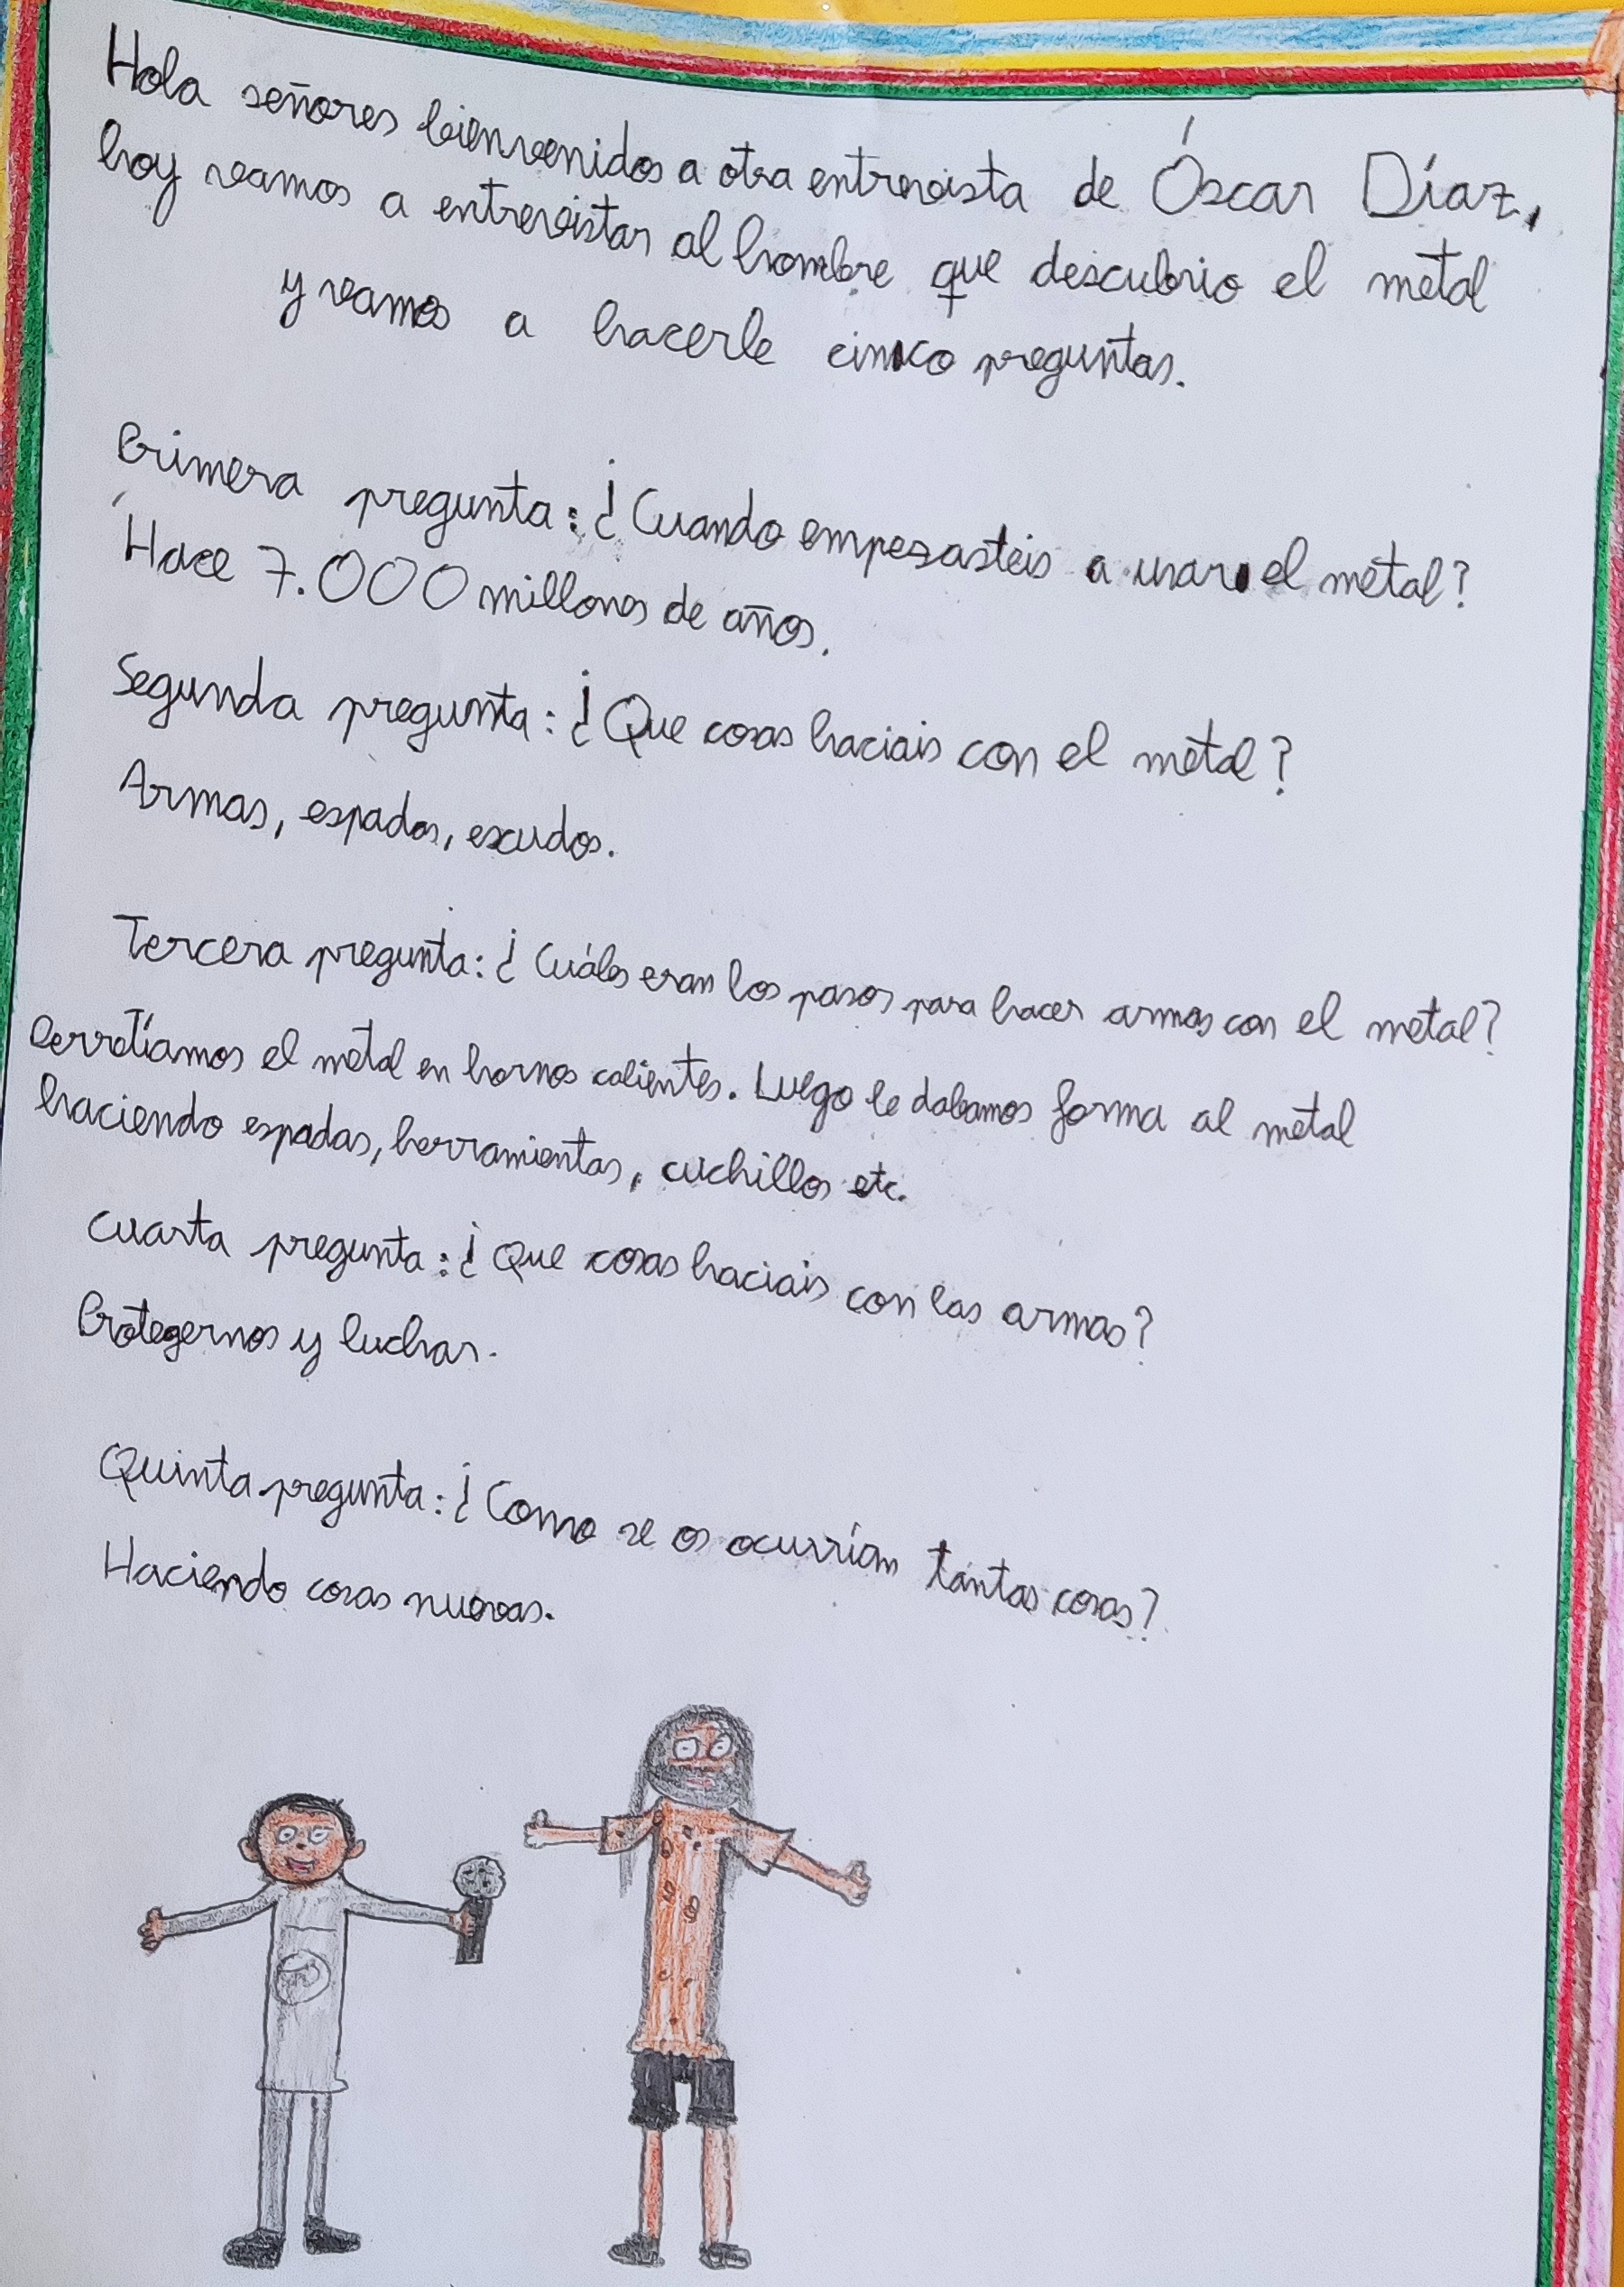 Hola señores bienvenidos a otra entrevista de Óscar Díaz,
hoy vamos a entrevistar al hombre que descubrio el metal
y vamos a hacerle cinco preguntas.
Primera pregunta: ¿Cuando empezasteis a usar el metal?
Hace 7.000 millones de años.
Segunda pregunta: ¿Que cosas haciais con el metal?
Armas, espadas, escudos.
Tercera pregunta: ¿Cuáles eran los pasos para hacer armas con el metal?
Derretíamos el metal en hornos calientes. Luego le dabamos forma al metal
haciendo espadas, herramientas, cuchillos etc.
Cuarta pregunta: ¿Que cosas haciais con las armas?
Protegernos y luchar.
Quinta pregunta: ¿Como se os ocurrían tantas cosas?
Haciendo cosas nuevas.